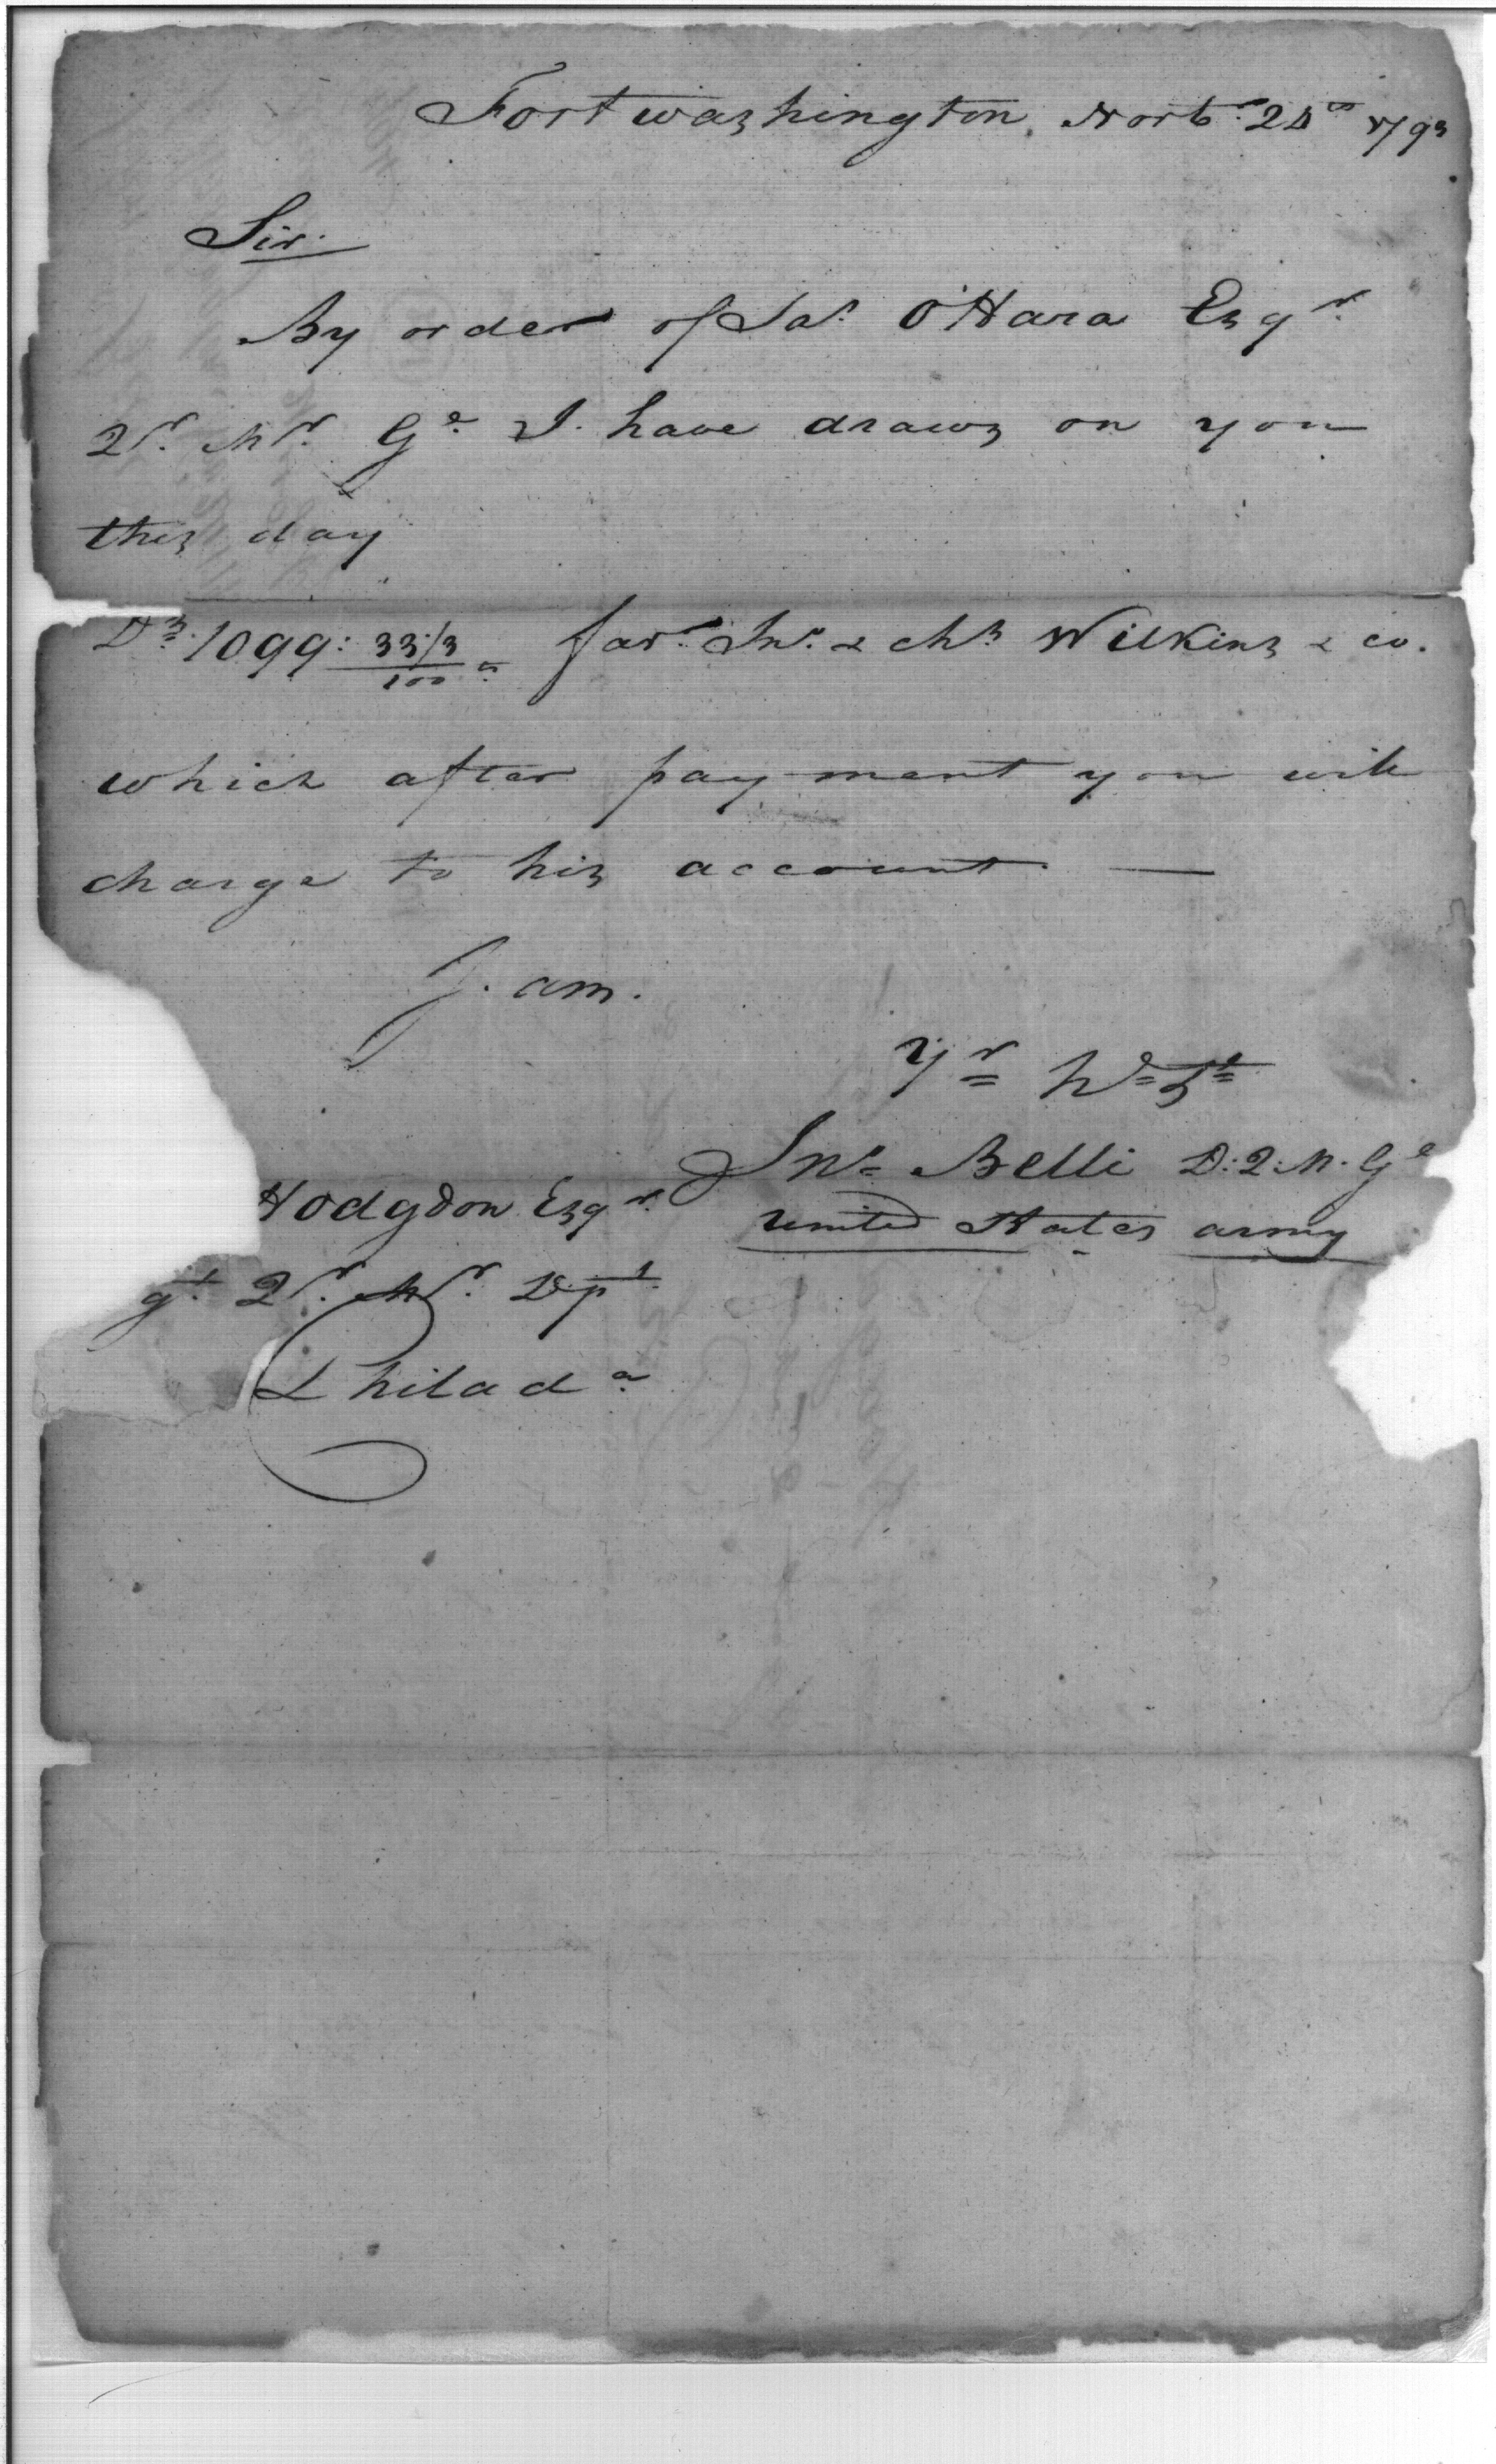 Fort washington, Novbr. 24th 1793
Sir.
By order of Jas. O'Hara Esqr.
Qr. Mr. Ge. I. have draws on you
this day
Ds. 1099: 33 1/3/100 favr. Jno. & Chs Wilkins & co.
which after payment you will
charge to his account. —
I. am.
Yr hbe St
Jno. Belli D: Q: M. Gl
Hodgdon Esqr. united States army
gt. Qr. Mr. Dpt.
Philada